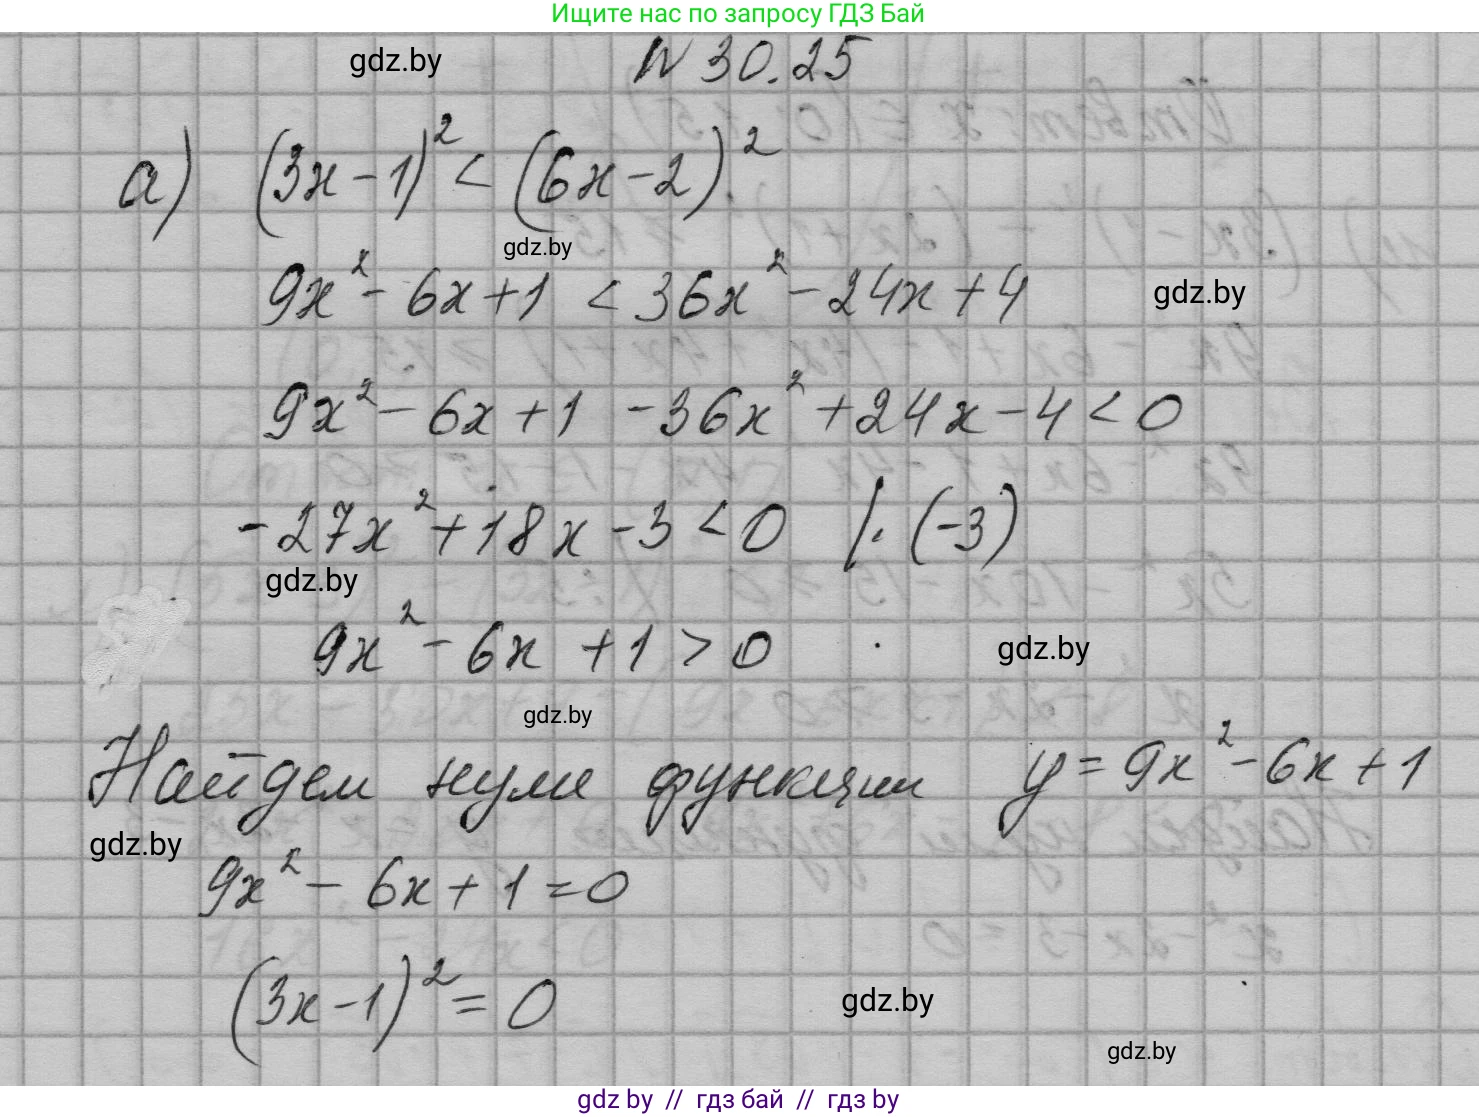 Ищите нас по запросу ГДЗ Бай
gdz.by
N 30.25
а) (3x-1)² < (6x-2)²
gdz.by
9x² - 6x + 1 < 36x² - 24x + 4
gdz.by
9x² - 6x + 1 - 36x² + 24x - 4 < 0
-27x² + 18x - 3 < 0 |: (-3)
gdz.by
9x² - 6x + 1 > 0
gdz.by
gdz.by
Найдем нули функции y = 9x² - 6x + 1
gdz.by
9x² - 6x + 1 = 0
(3x-1)² = 0
gdz.by
gdz.by
gdz by // гдз бай // гдз by